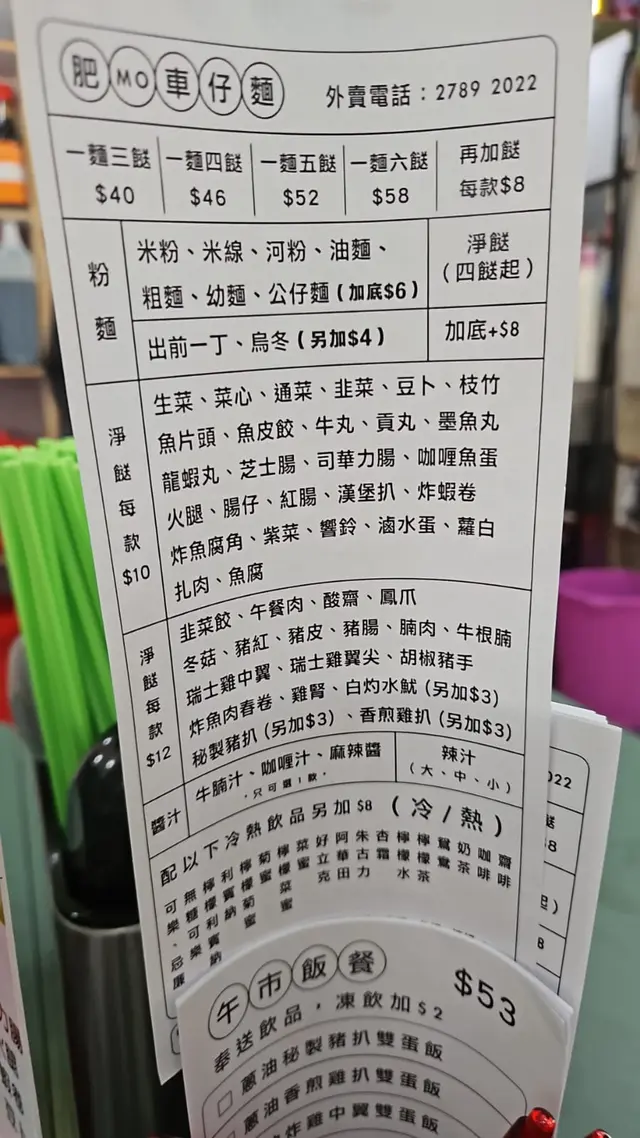 肥MO車仔麵
外賣電話：2789 2022
一麵三餸 一麵四餸 一麵五餸 一麵六餸 再加餸
$40 $46 $52 $58 每款$8
粉麵
米粉、米線、河粉、油麵、
粗麵、幼麵、公仔麵(加底$6)
淨餸
(四餸起)
出前一丁、烏冬(另加$4)
加底+$8
淨餸每款$10
生菜、菜心、通菜、韭菜、豆卜、枝竹
魚片頭、魚皮餃、牛丸、貢丸、墨魚丸
龍蝦丸、芝士腸、司華力腸、咖喱魚蛋
火腿、腸仔、紅腸、漢堡扒、炸蝦卷
炸魚腐角、紫菜、響鈴、滷水蛋、蘿白
扎肉、魚腐
淨餸每款$12
韭菜餃、午餐肉、酸齋、鳳爪
冬菇、豬紅、豬皮、豬腸、腩肉、牛根腩
瑞士雞中翼、瑞士雞翼尖、胡椒豬手
炸魚肉春卷、雞腎、白灼水魷(另加$3)
秘製豬扒(另加$3)、香煎雞扒(另加$3)
醬汁
牛腩汁、咖喱汁、麻辣醬
·只可選1款·
辣汁
(大、中、小)
配以下冷熱飲品另加$8 (冷/熱)
齋啡
咖啡
奶茶
鴛鴦
檸檬茶
檸檬水
杏霜
朱古力
阿華田
好立克
菜蜜
檸檬菜蜜
菊蜜
檸檬菊蜜
利賓納
檸檬利賓納
無糖可樂
可樂、忌廉
午市飯餐
$53
奉送飲品，凍飲加$2
蔥油秘製豬扒雙蛋飯
蔥油香煎雞扒雙蛋飯
炸雞中翼雙蛋飯
022